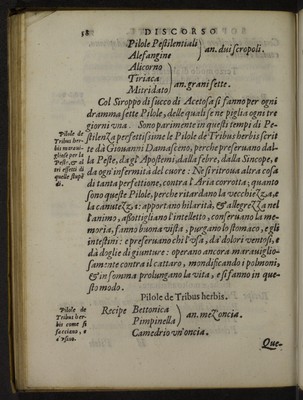 58 DISCORSO
Pilole Pestilentiali
Alefangine
an. dui scropoli.
Alicorno
Tiriaca
Mitridato
an. grani sette.
Col Siroppo di succo di Acetosa si fanno per ogni
dramma sette Pilole, delle quali se ne piglia ogni tre
giorni vna. Sono parimente in questi tempi di Pe-
stilenza perfettissime le Pilole de Tribus herbis scrit
te da Giouanni Damasceno, perche preseruano dal-
la Peste, da gl'Apostemi, dalla febre, dalla Sincope, e
da ogn'infermità del cuore: Ne si ritroua altra cosa
di tanta perfettione, contra l'Aria corrotta; quanto
sono queste Pilole, perche ritardano la vecchiezza, e
la canutezza: apportano hilarità, & allegrezza nel
l'animo, assottigliano l'intelletto, conseruano la me-
moria, fanno buona vista, purgano lo stomaco, e gli
intestini: e preseruano chi l'vsa, da' dolori ventosi, e
da doglie di giunture: operano ancora marauiglio-
samente contra il cattaro, mondificando i polmoni,
& in somma prolungano la vita, e si fanno in que-
sto modo.
Pilole de
Tribus her-
bis maraui-
gliose per la
Peste, et al
tri effetti di
quelle stupē
di.
Pilole de Tribus herbis.
Recipe Bettonica
Pimpinella
an. mezoncia.
Camedrio vn'oncia.
Pilole de
Tribus her-
bis come si
facciano, e
s'vsino.
Que-